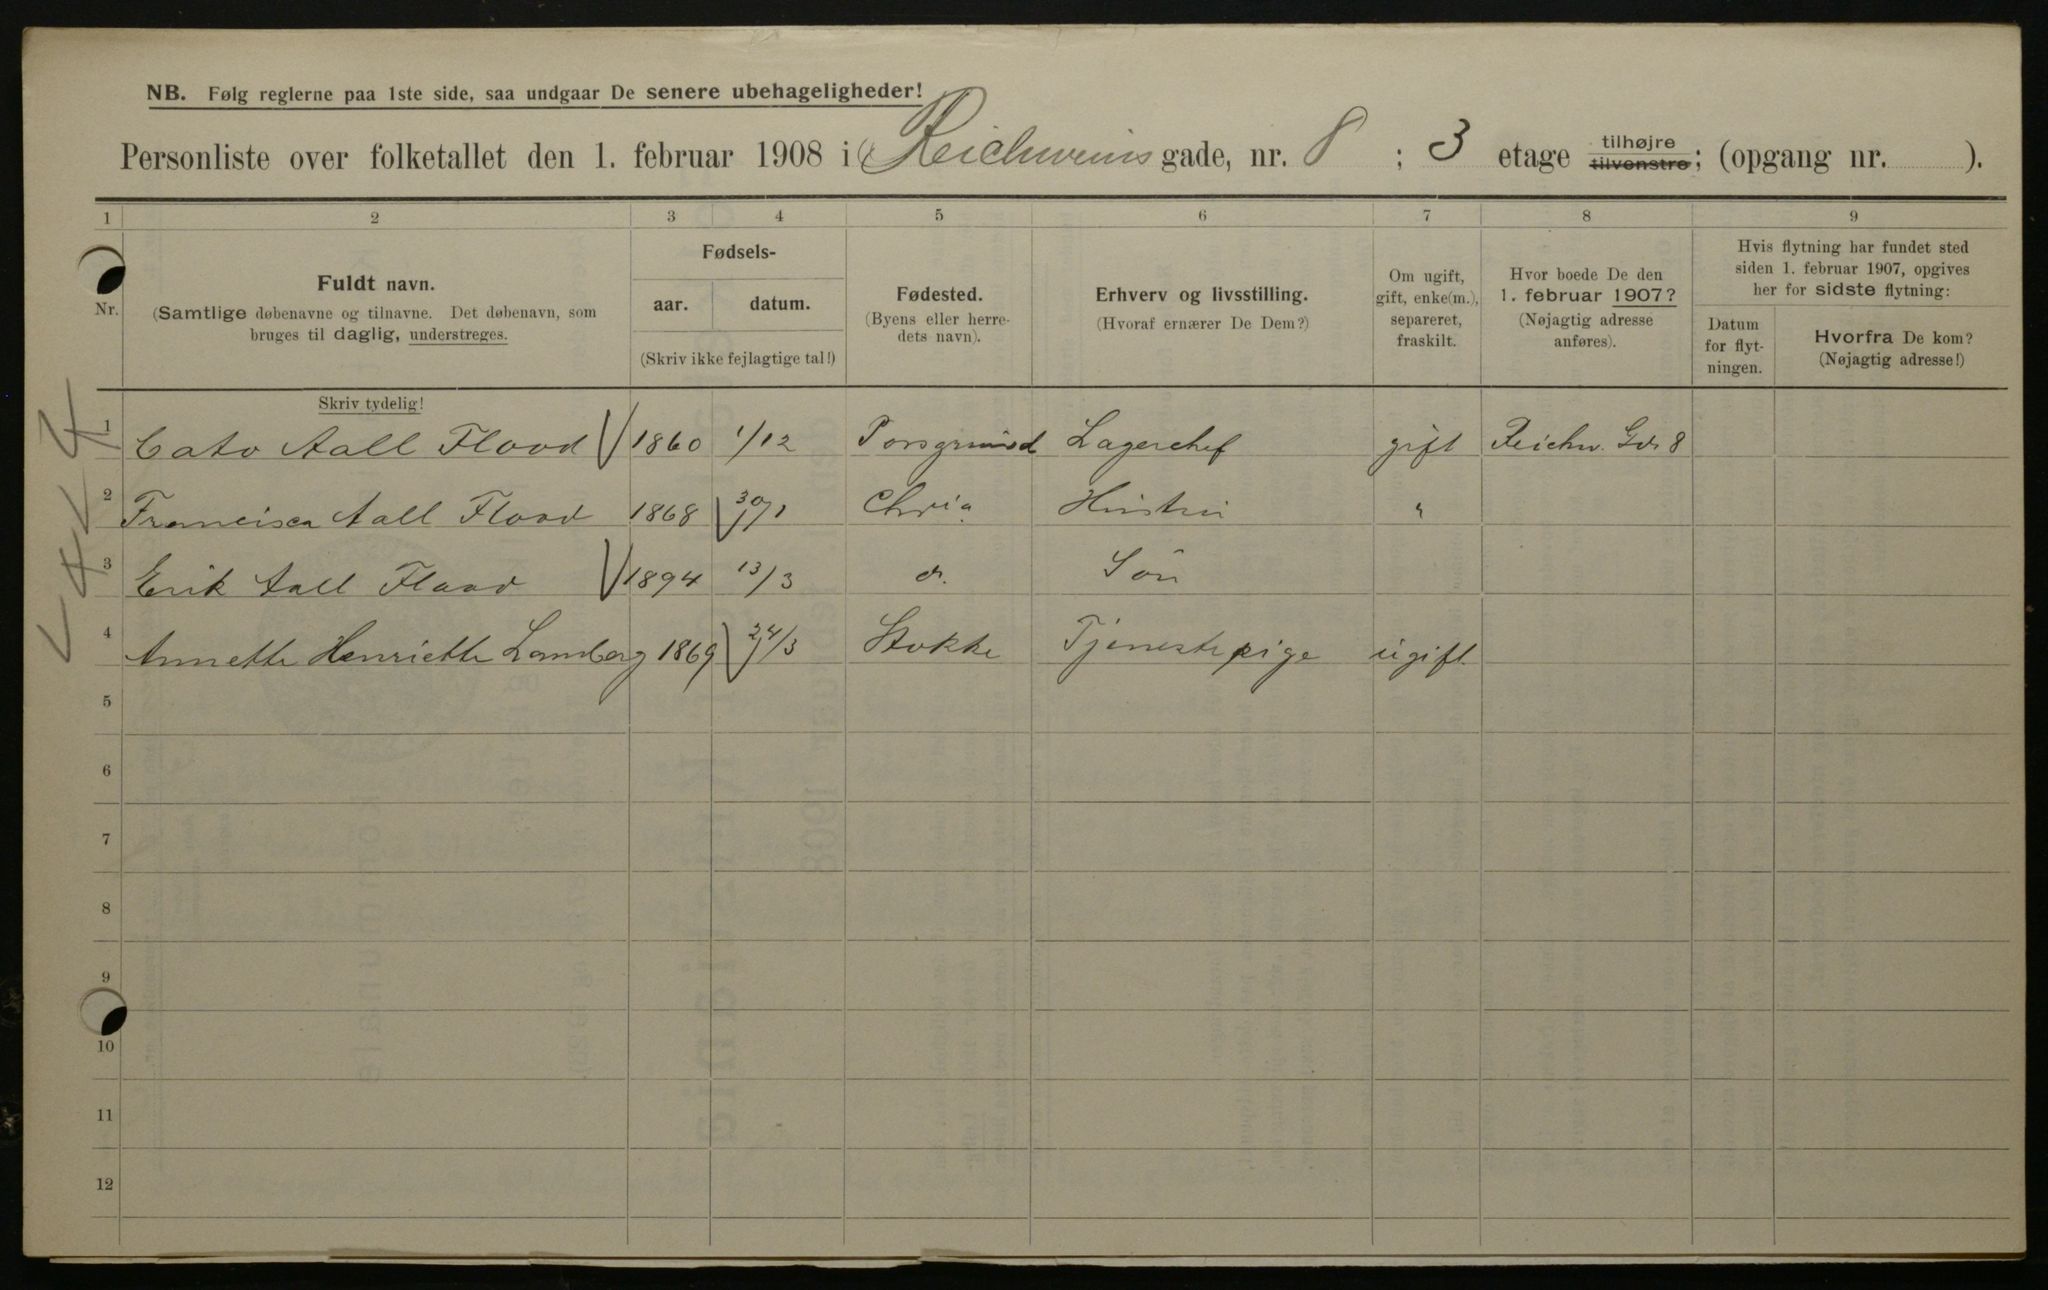 NB. Følg reglerne paa 1ste side, saa undgaar De senere ubehageligheder!
Personliste over folketallet den 1. februar 1908 i Reichweins gade, nr. 8 ; 3 etage tilhøjre tilvenstre; (opgang nr. ).
1 2 3 4 5 6 7 8 9
Nr.
Fuldt navn.
(Samtlige døbenavne og tilnavne. Det døbenavn, som
bruges til daglig, understreges.
Fødsels-
aar. datum.
(Skriv ikke fejlagtige tal!)
Fødested.
(Byens eller herre-
dets navn).
Erhverv og livsstilling.
(Hvoraf ernærer De Dem?)
Om ugift,
gift, enke(m.),
separeret,
fraskilt.
Hvor boede De den
1. februar 1907?
(Nøjagtig adresse
anføres).
Hvis flytning har fundet sted
siden 1. februar 1907, opgives
her for sidste flytning:
Datum
for flyt-
ningen.
Hvorfra De kom?
(Nøjagtig adresse!)
Skriv tydelig!
1 Cato Aall Flood 1860 1/12 Porsgrund Lagerchef gift Reichw. Gd. 8
2 Francisca Aall Flood 1868 30/1 Chria. Hustru "
3 Erik Aall Flood 1894 13/3 d. Søn
4 Annette Henriette Lamberg 1869 24/3 Stokke Tjenestepige ugift
5
6
7
8
9
10
11
12